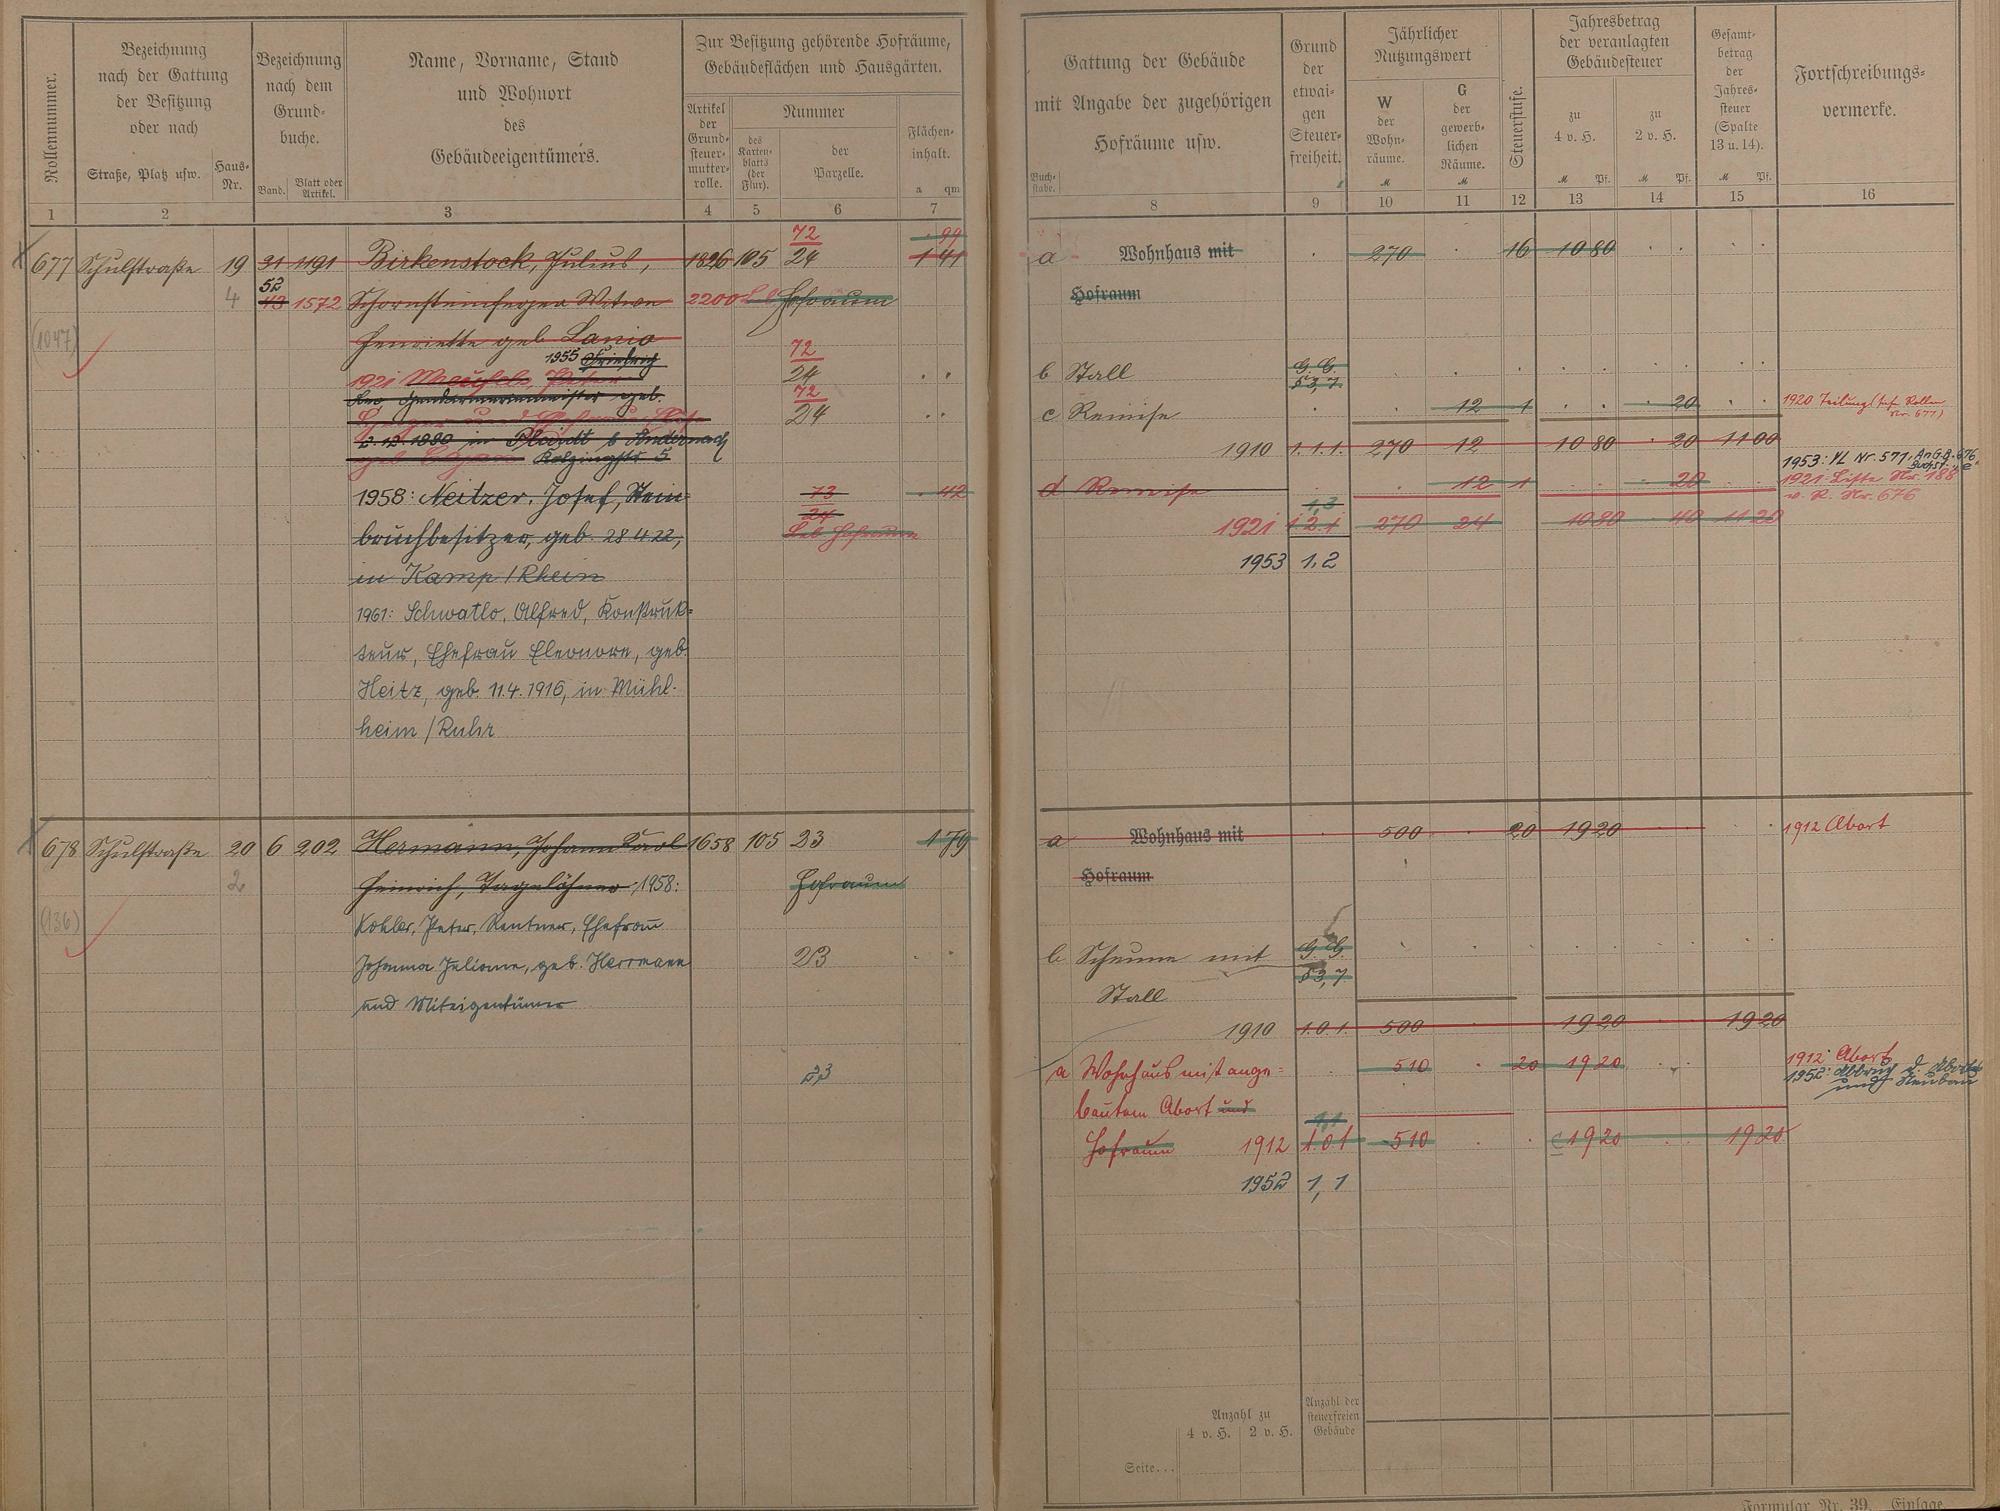 Rollennummer.
Bezeichnung
nach der Gattung
der Besitzung
oder nach
Straße, Platz usw.
Haus-
Nr.
Bezeichnung
nach dem
Grund-
buche.
Band.
Blatt oder
Artikel.
Name, Vorname, Stand
und Wohnort
des
Gebäudeeigentümers.
Zur Besitzung gehörende Hofräume,
Gebäudeflächen und Hausgärten.
Artikel
der
Grund-
steuer-
mutter-
rolle.
Nummer
des
Karten-
blatts
(der
Flur).
der
Parzelle.
Flächen-
inhalt.
a qm
1 2 3 4 5 6 7
677 Schulstraße 19 31 1191 Birkenstock, Julius, 1826 105 72 24 99 1 41
4 52 43 1572 Schornsteinfeger Witwe 2200 Hofraum
(1047) Henriette geb Lanio
1955 Friedrich
72
1921 Peter 24
Gendarmeriemeister geb. 72
24
2.12.1880 in Plaidt b Andernach
geb Kolpingstr 5
1958: Neitzer, Josef, Stein- 73 42
24
bruchbesitzer, geb. 28 4 22, Hofraum
in Kamp / Rhein
1961: Schwatlo, Alfred, Konstruk-
teur, Ehefrau Eleonore, geb.
Heitz, geb. 11.4.1916, in Mühl-
heim / Ruhr
678 Schulstraße 20 6 202 Hermann, Johann Karl 1658 105 23 1 79
2 Heinrich, Tagelöhner, 1958: Hofraum
(936) Kohler, Peter, Rentner, Ehefrau
Johanna Juliane, geb. Herrmann 23
und Miteigentümer
23
Gattung der Gebäude
mit Angabe der zugehörigen
Hofräume usw.
Buch-
stabe.
Grund
der
etwai-
gen
Steuer-
freiheit.
Jährlicher
Nutzungswert
W
der
Wohn-
räume.
M
G
der
gewerb-
lichen
Räume.
M
Steuerstufe.
Jahresbetrag
der veranlagten
Gebäudesteuer
zu
4 v. H.
M Pf.
zu
2 v. H.
M Pf.
Gesamt-
betrag
der
Jahres-
steuer
(Spalte
13 u. 14).
M Pf.
Fortschreibungs-
vermerke.
8 9 10 11 12 13 14 15 16
a Wohnhaus mit 270 16 10 80
Hofraum
b Stall G. G. 53,7
c Remise 12 1 20 1920 Teilung
Nr. 677)
1910 1.1.1. 270 12 10 80 20 11 00
1953: VL Nr. 571, 676
d Remise 12 1 20 1921 Liste Nr. 188
v. R. Nr. 676
1,3
1921 1.2.1 270 24 10 80 40 11 20
1953 1.2
a Wohnhaus mit 500 20 19 20 1912 Abort
Hofraum
b Scheune mit G. G. 53,7
Stall
1910 1.0.1. 500 19 20 19 20
a Wohnhaus mit ange- 510 20 19 20 1912: Abort
1952: Abbruch d. Abortes
und Neubau
bautem Abort und
1,1
Hofraum 1912 1.0.1 510 19 20 19 20
1952 1,1
Anzahl zu
4 v. H. 2 v. H.
Anzahl der
steuerfreien
Gebäude
Seite...
Formular Nr. 39. Einlage